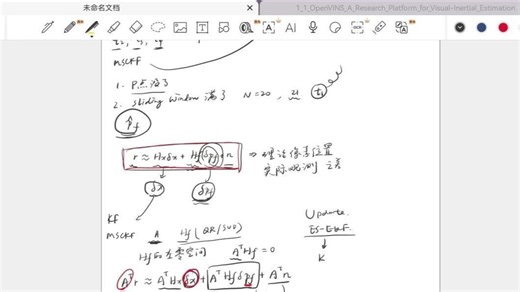 未命名文档
1_1_OpenVINS_A_Research_Platform_for_Visual-Inertial_Estimation
MSCKF
1. P点没了
2. Sliding window 满了 N=20, 21 t₁
P̂_f
r ≈ Hxδx + Hfδpf + n ⇒ 理论像素位置
实际观测 之差
δx δpf
KF
MSCKF A Hf (QR/SVD)
Hf 的左零空间 AᵀHf = 0
Update
ES-EKF
K
Aᵀr ≈ AᵀHxδx + AᵀHfδpf + Aᵀn